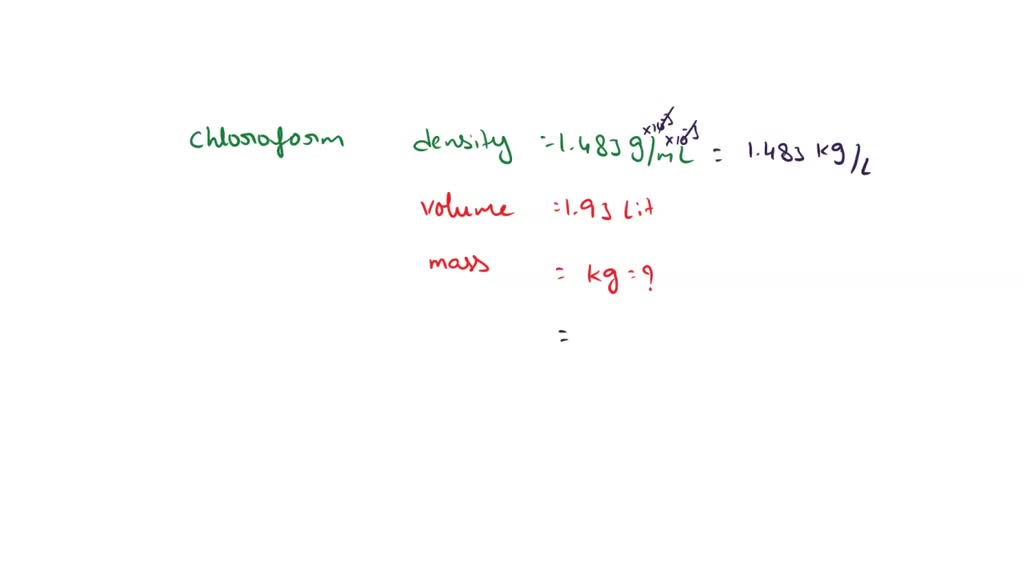 chloroform density = 1.483 g/mL = 1.483 kg/L
volume = 1.93 Lit
mass = kg = ?
=